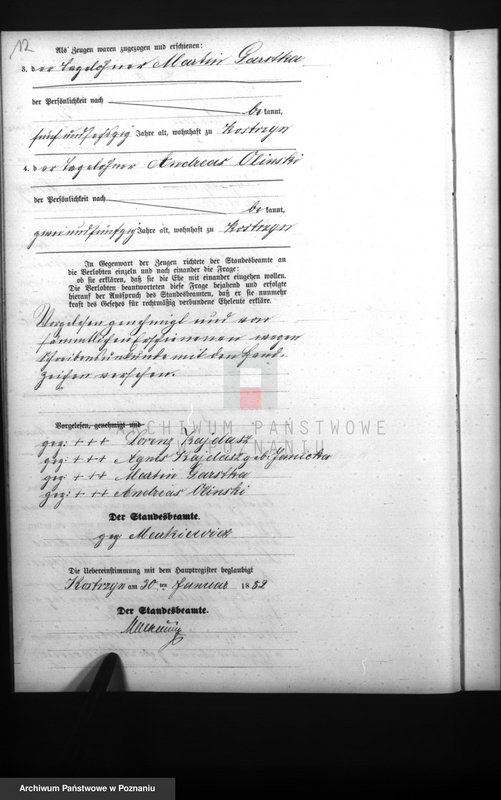 12
Als Zeugen waren zugezogen und erschienen:
3. der Tagelöhner Martin Garstka
der Persönlichkeit nach
be kannt,
fünfundsechzig Jahre alt, wohnhaft zu Kostrzyn
4. der Tagelöhner Andreas Olinski
der Persönlichkeit nach
be kannt,
zweiundfünfzig Jahre alt, wohnhaft zu Kostrzyn
In Gegenwart der Zeugen richtete der Standesbeamte an
die Verlobten einzeln und nach einander die Frage:
ob sie erklären, daß sie die Ehe mit einander eingehen wollen.
Die Verlobten beantworteten diese Frage bejahend und erfolgte
hierauf der Ausspruch des Standesbeamten, daß er sie nunmehr
kraft des Gesetzes für rechtmäßig verbundene Eheleute erkläre.
Vorgelesen genehmigt und von
sämmtlichen Erschienenen wegen
Schreibensunkunde mit den Hand-
zeichen versehen.
ARCHIWUM PAŃSTWOWE
W POZNANIU
Vorgelesen, genehmigt und
gez: + + + Lorenz Kajdasz
gez: + + + Agnes Kajdasz geb: Janicka
gez: + ++ Martin Garstka
gez: + ++ Andreas Olinski
Der Standesbeamte.
gez
Die Uebereinstimmung mit dem Hauptregister beglaubigt
Kostrzyn am 30 ten Januar 18 82
Der Standesbeamte.
Archiwum Państwowe w Poznaniu